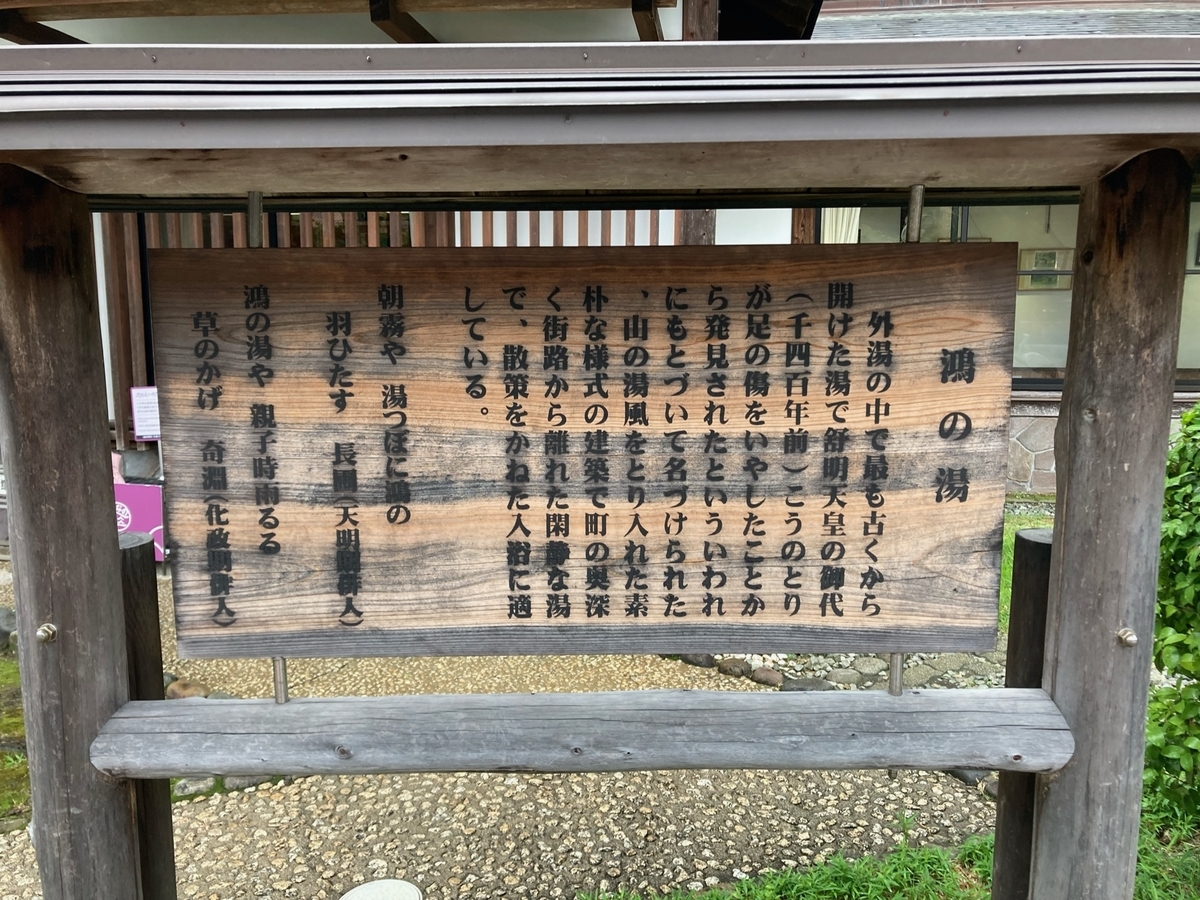 鴻の湯
外湯の中で最も古くから
開けた湯で舒明天皇の御代
(千四百年前)こうのとり
が足の傷をいやしたことか
ら発見されたといういわれ
にもとづいて名づけられた
、山の湯風をとり入れた素
朴な様式の建築で町の奥深
く街路から離れた閑静な湯
で、散策をかねた入浴に適
している。
朝霧や 湯つぼに鴻の
羽ひたす 長圃(天明朝俳人)
鴻の湯や 親子時雨るる
草のかげ 奇淵(化政朝俳人)